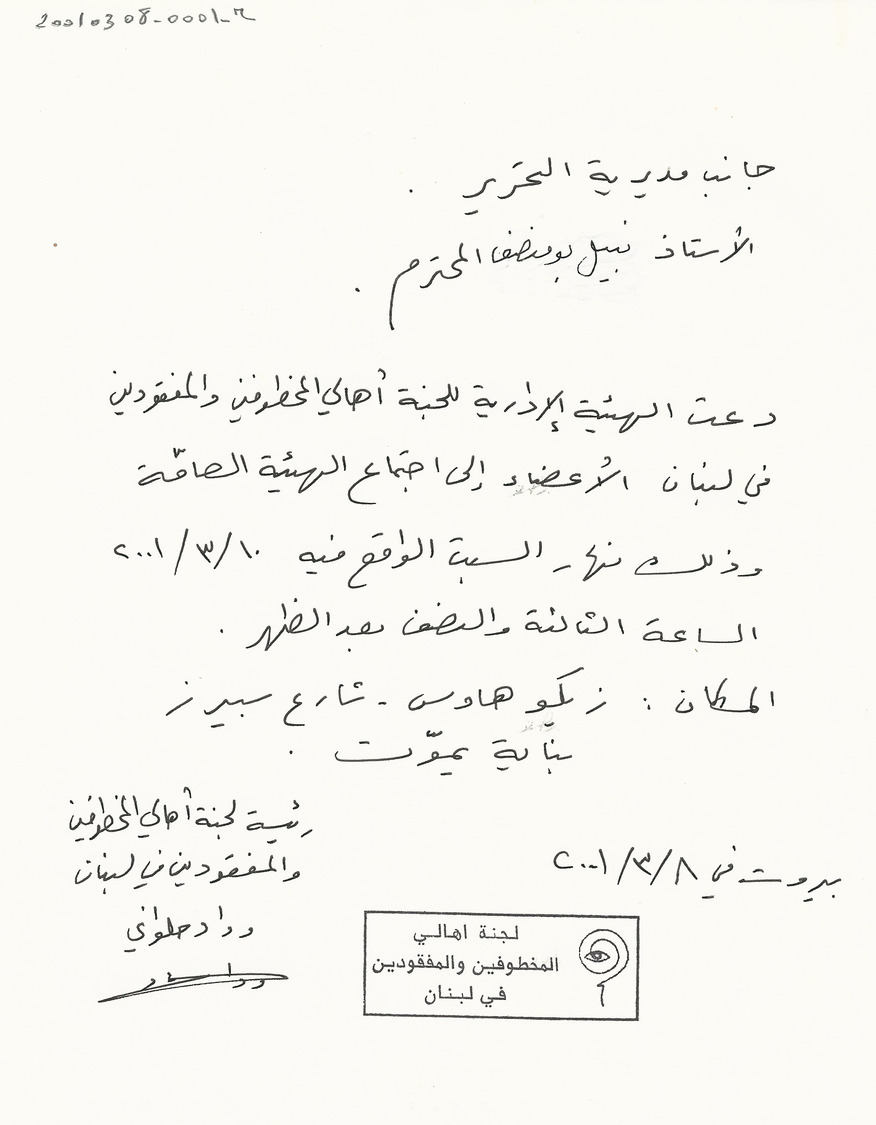 20010308-0001-م
جانب مديرية التحرير .
الأستاذ نبيل بومنصف المحترم .
دعت الهيئة الإدارية للجنة أهالي المخطوفين والمفقودين
في لبنان الأعضاء إلى اجتماع الهيئة العامّة
وذلك نهار السبت الواقع فيه ١٠/٣/٢٠٠١
الساعة الثالثة والنصف بعد الظهر .
المكان : زيكو هاوس - شارع سبيرز
بناية يموّت .
بيروت في ٨/٣/٢٠٠١
رئيسة لجنة أهالي المخطوفين
والمفقودين في لبنان
وداد حلواني
لجنة اهالي
المخطوفين والمفقودين
في لبنان